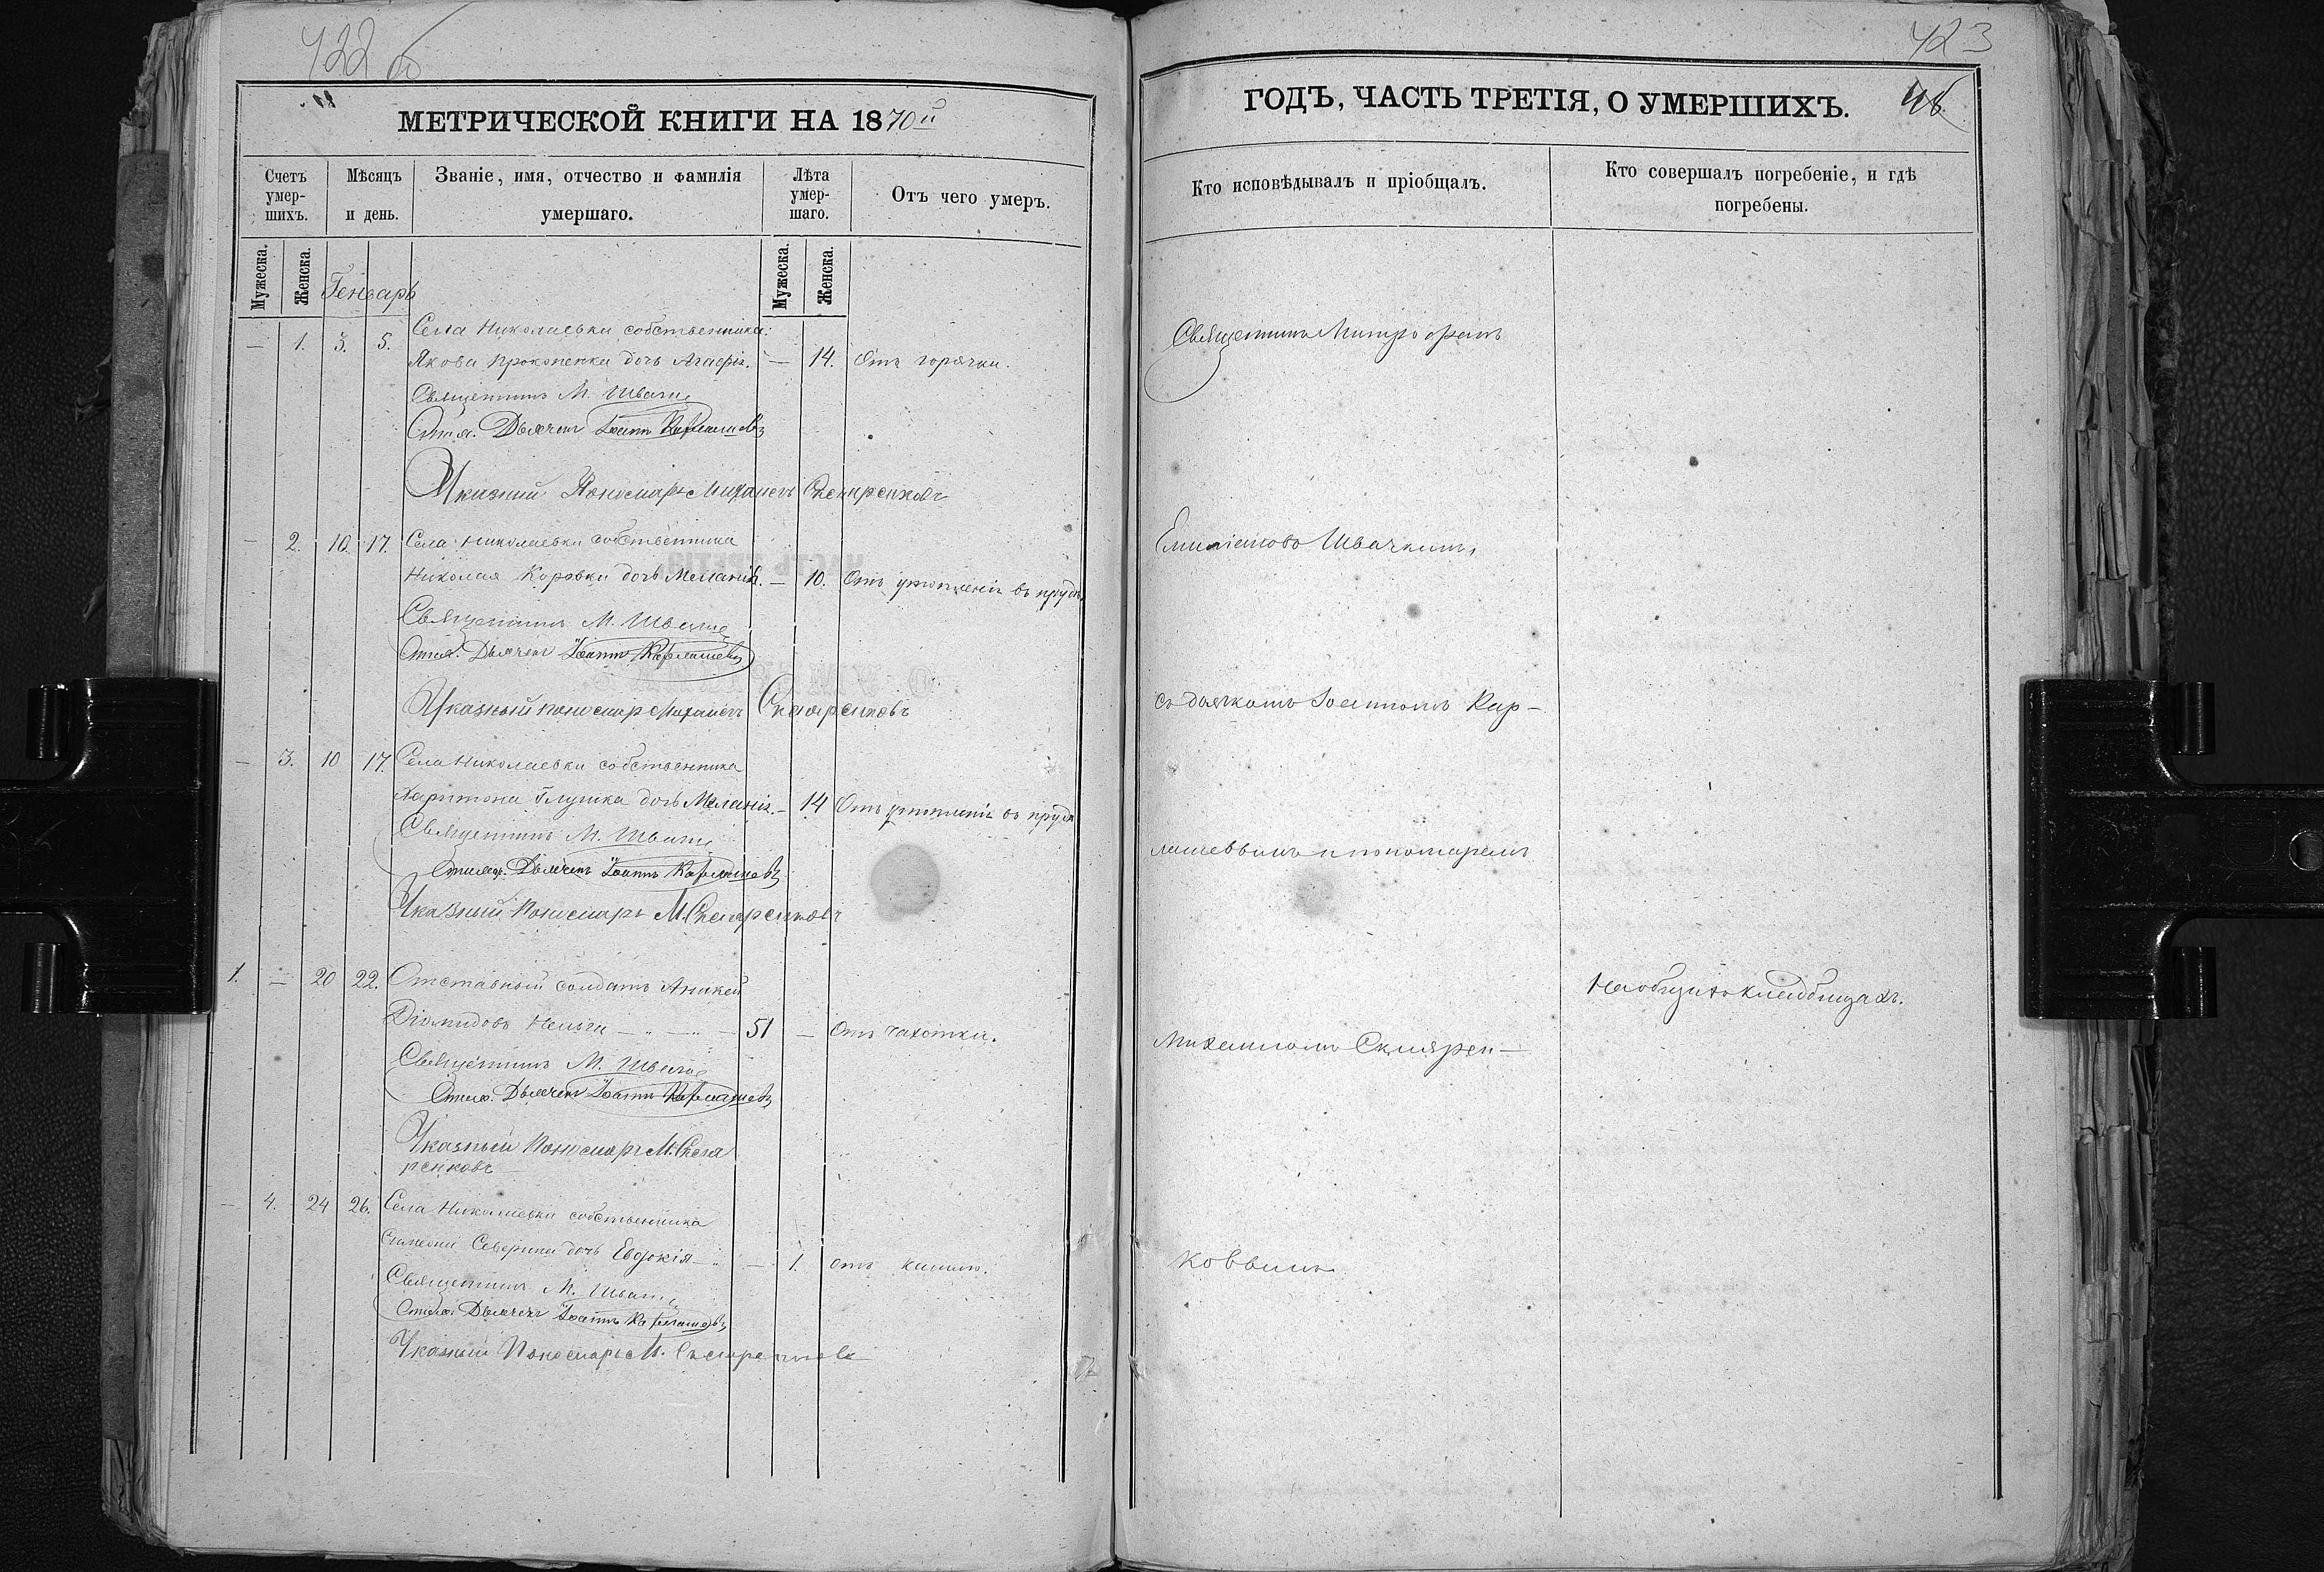 422 об
МЕТРИЧЕСКОЙ КНИГИ НА 1870й
Счетъ умер-шихъ.
Мѣсяцъ и день.
Званіе, имя, отчество и фамилія умершаго.
Лѣта умер-шаго.
Отъ чего умеръ.
Мужеска. Женска. Мужеска. Женска.
Генварь
Села Николаевки собственника
— 1. 3. 5. Якова Прокопенка дочь Агафія. — 14. Отъ горячки.
Священникъ М. Швачка
Дьячекъ Іоаннъ Карлашевъ
Указный Пономарь Михаилъ Скляренковъ
— 2. 10. 17. Села Николаевки собственника
Николая Коровки дочь Меланія. — 10. Отъ утопленія въ пруде
Священникъ М. Швачка
Дьячекъ Іоаннъ Карлашевъ
Указный пономарь Михаилъ Скляренковъ
— 3. 10 17. Села Николаевки собственника
Харитона Глушка дочь Меланія. — 14 Отъ утопленія въ пруде
Священникъ М. Швачка
Дьячекъ Іоаннъ Карлашевъ
Указный Пономарь М. Скляренковъ
1. — 20 22. Отставный солдатъ Аникей
Діомидовъ — " — " — 51 — Отъ чахотки.
Священникъ М. Швачка
Дьячекъ Іоаннъ Карлашевъ
Указный Пономарь М. Скля
ренковъ
— 4. 24 26. Села Николаевки собственника
Северина дочь Евдокія — " — 1. отъ кашлю.
Священникъ М. Швачка
Дьячекъ Іоаннъ Карлашевъ
Указный Пономарь М. Скляренковъ
423
ГОДЪ, ЧАСТЬ ТРЕТІЯ, О УМЕРШИХЪ.
Кто исповѣдывалъ и пріобщалъ.
Кто совершалъ погребеніе, и гдѣ погребены.
Священникъ Митрофанъ
Емиліановъ Швачкинъ,
съ дьячкомъ Іоанномъ Кар-
лашевымъ и пономаремъ
На общихъ кладбищахъ.
Михаиломъ Склярен-
ковымъ